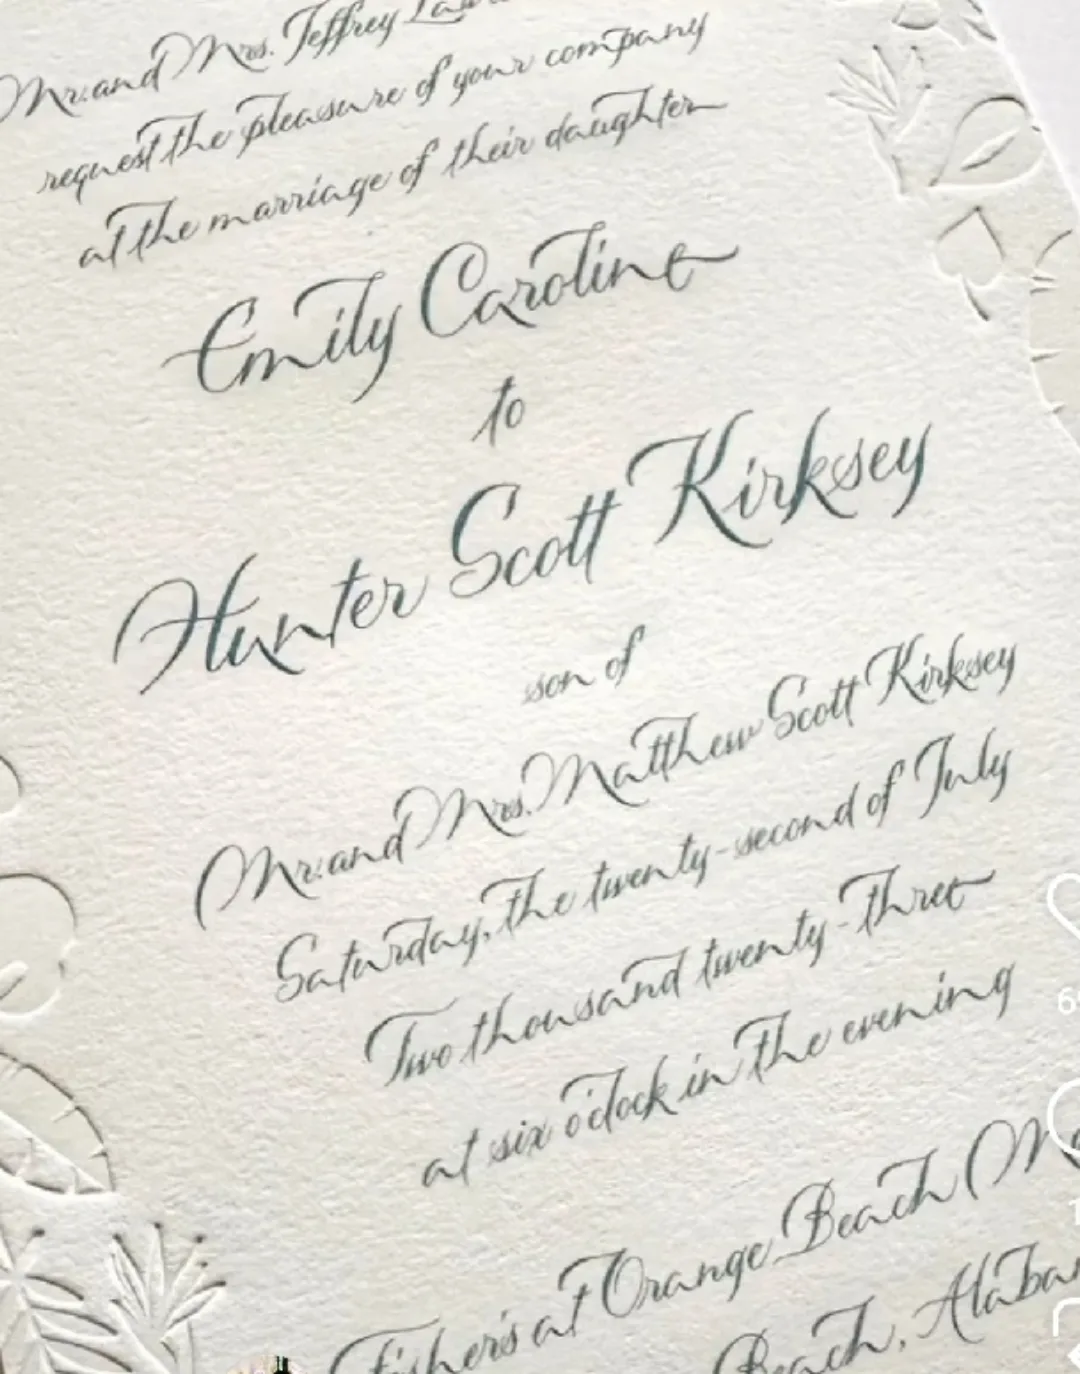 Mr. and Mrs. Jeffrey
request the pleasure of your company
at the marriage of their daughter
Emily Caroline
to
Hunter Scott Kirksey
son of
Mr. and Mrs. Matthew Scott Kirksey
Saturday, the twenty-second of July
Two thousand twenty-three
at six o'clock in the evening
Fisher's at Orange Beach
Beach,